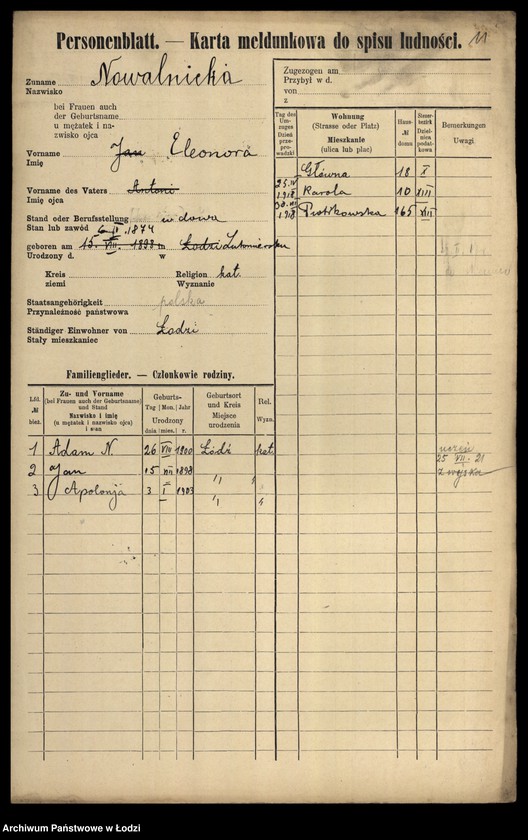 Personenblatt. — Karta meldunkowa do spisu ludności.
11
Zuname Nowalnicka
Nazwisko
bei Frauen auch
der Geburtsname
u mężatek i na-
zwisko ojca
Vorname Jan Eleonora
Imię
Vorname des Vaters Antoni
Imię ojca
Stand oder Berufsstellung wdowa
Stan lub zawód 6 II 1874
geboren am 15. VIII. 1898 in Łodzi Lutomiersku
Urodzony d. w
Kreis Religion kat.
ziemi Wyznanie
Staatsangehörigkeit polska
Przynależność państwowa
Ständiger Einwohner von Łodzi
Stały mieszkaniec
Zugezogen am
Przybył w d.
von
z
Tag des Umzuges Dzień przeprowadzki
Wohnung (Strasse oder Platz) Mieszkanie (ulica lub plac)
Haus-№ domu
Steuerbezirk Dzielnica podatkowa
Bemerkungen Uwagi
Główna 18 X
25. IV 1918 Karola 10 XIII
1918 Piotrkowska 165 XIII
Familienglieder. — Członkowie rodziny.
Lfd. № bież.
Zu- und Vorname (bei Frauen auch der Geburtsname) und Stand Nazwisko i imię (u mężatek i nazwisko ojca) i stan
Geburts- Tag Mon. Jahr Urodzony dnia mies. r.
Geburtsort und Kreis Miejsce urodzenia
Rel. Wyzn.
1 Adam N. 26 VIII 1900 Łódź kat.
uczeń
25 VII 21
z wojska
2 Jan 15 VIII 1898 " "
3 Apolonja 3 I 1903 " "
Archiwum Państwowe w Łodzi